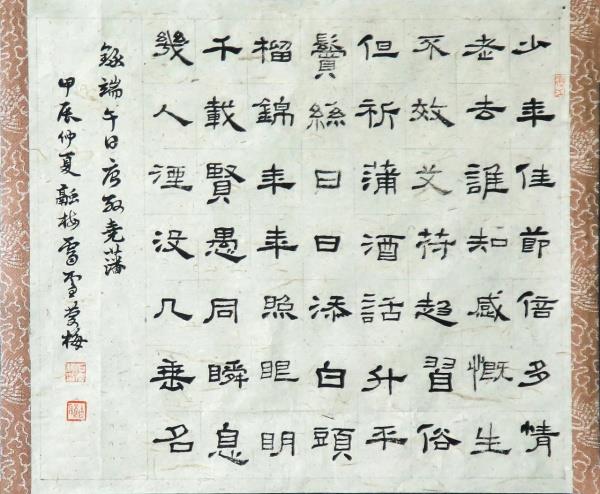 少年佳節倍多情
老去誰知感慨生
不效艾符趍習俗
但祈蒲酒話升平
鬢絲日日添白頭
榴錦年年照眼明
千載賢愚同瞬息
幾人湮没几垂名
錄端午日唐殷堯藩
甲辰仲夏融梅雪夢梅